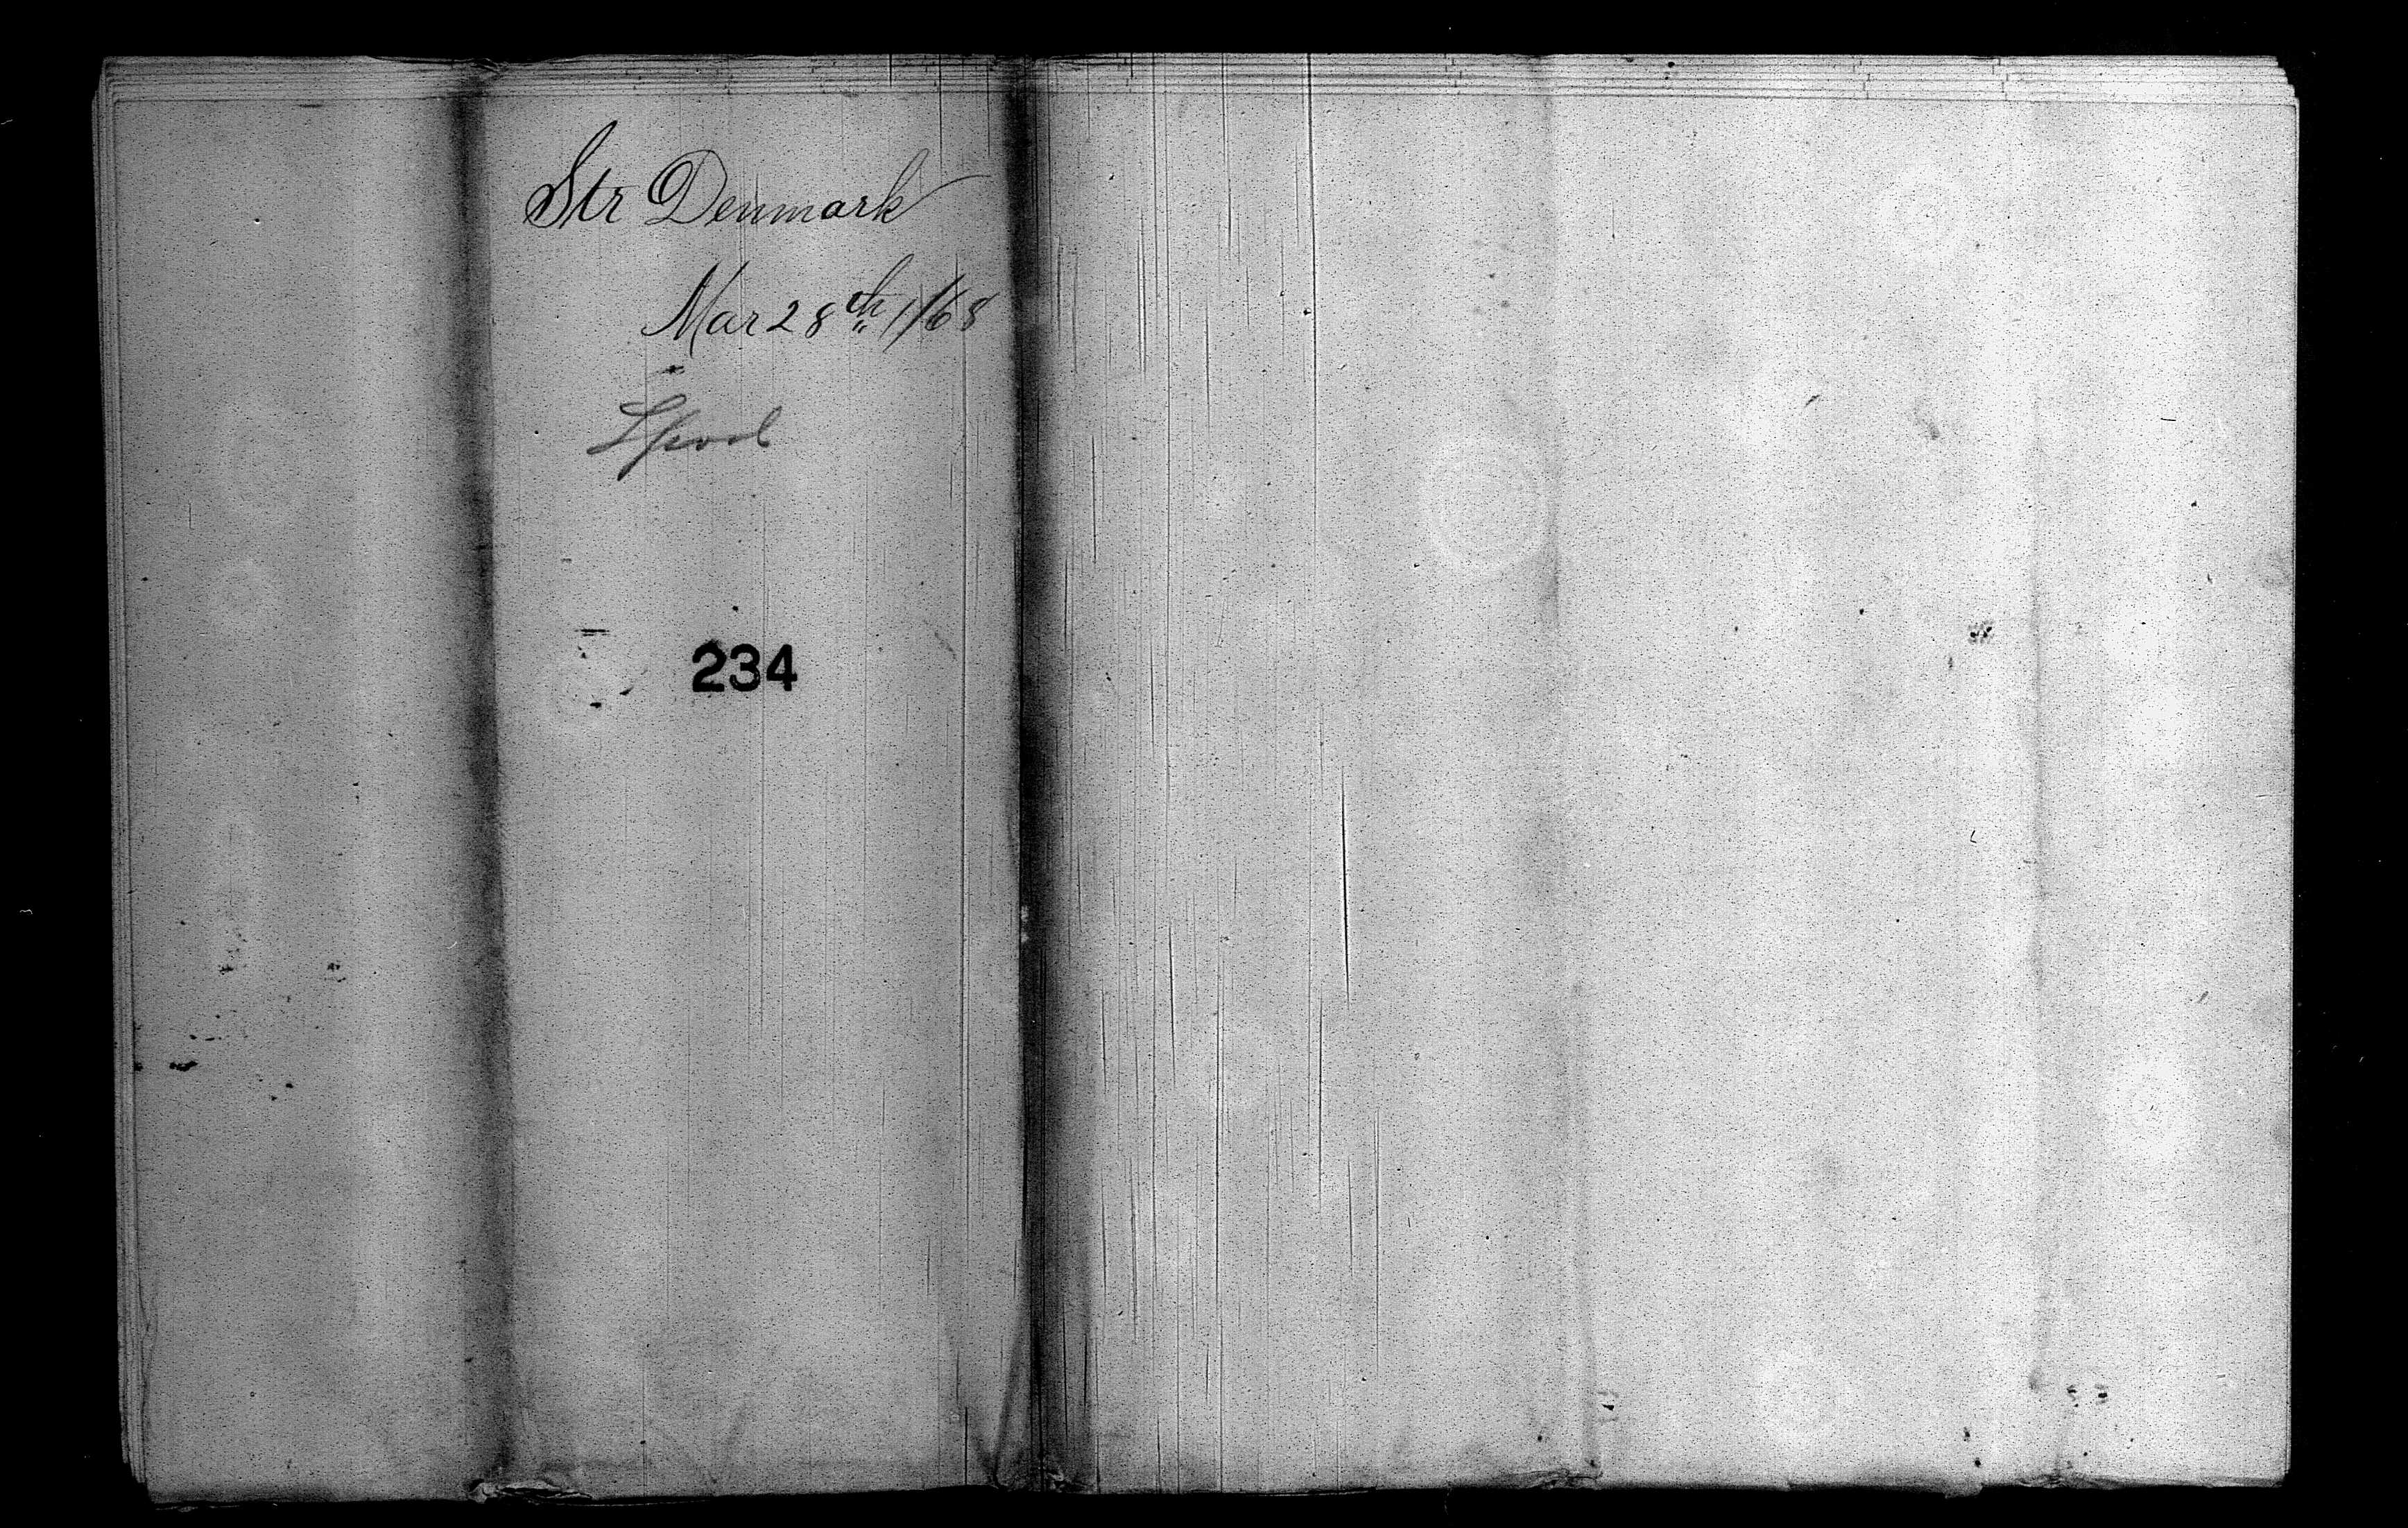 Str Denmark
Mar 28th 1868
Lpool
234